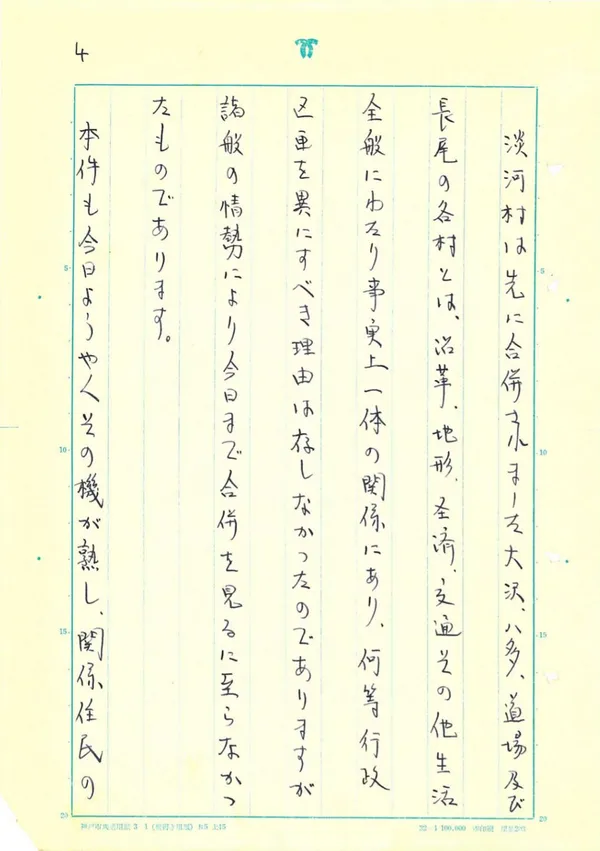 4
淡河村は先に合併されました大沢、八多、道場及び
長尾の各村とは、沿革、地形、圣済、交通その他生活
全般にわたり事実上一体の関係にあり、何等行政
区画を異にすべき理由は存しなかったのでありますが
諸般の情勢により今日まで合併を見るに至らなかっ
たものであります。
本件も今日ようやくその機が熟し、関係住民の
5
10
15
20
5
10
15
20